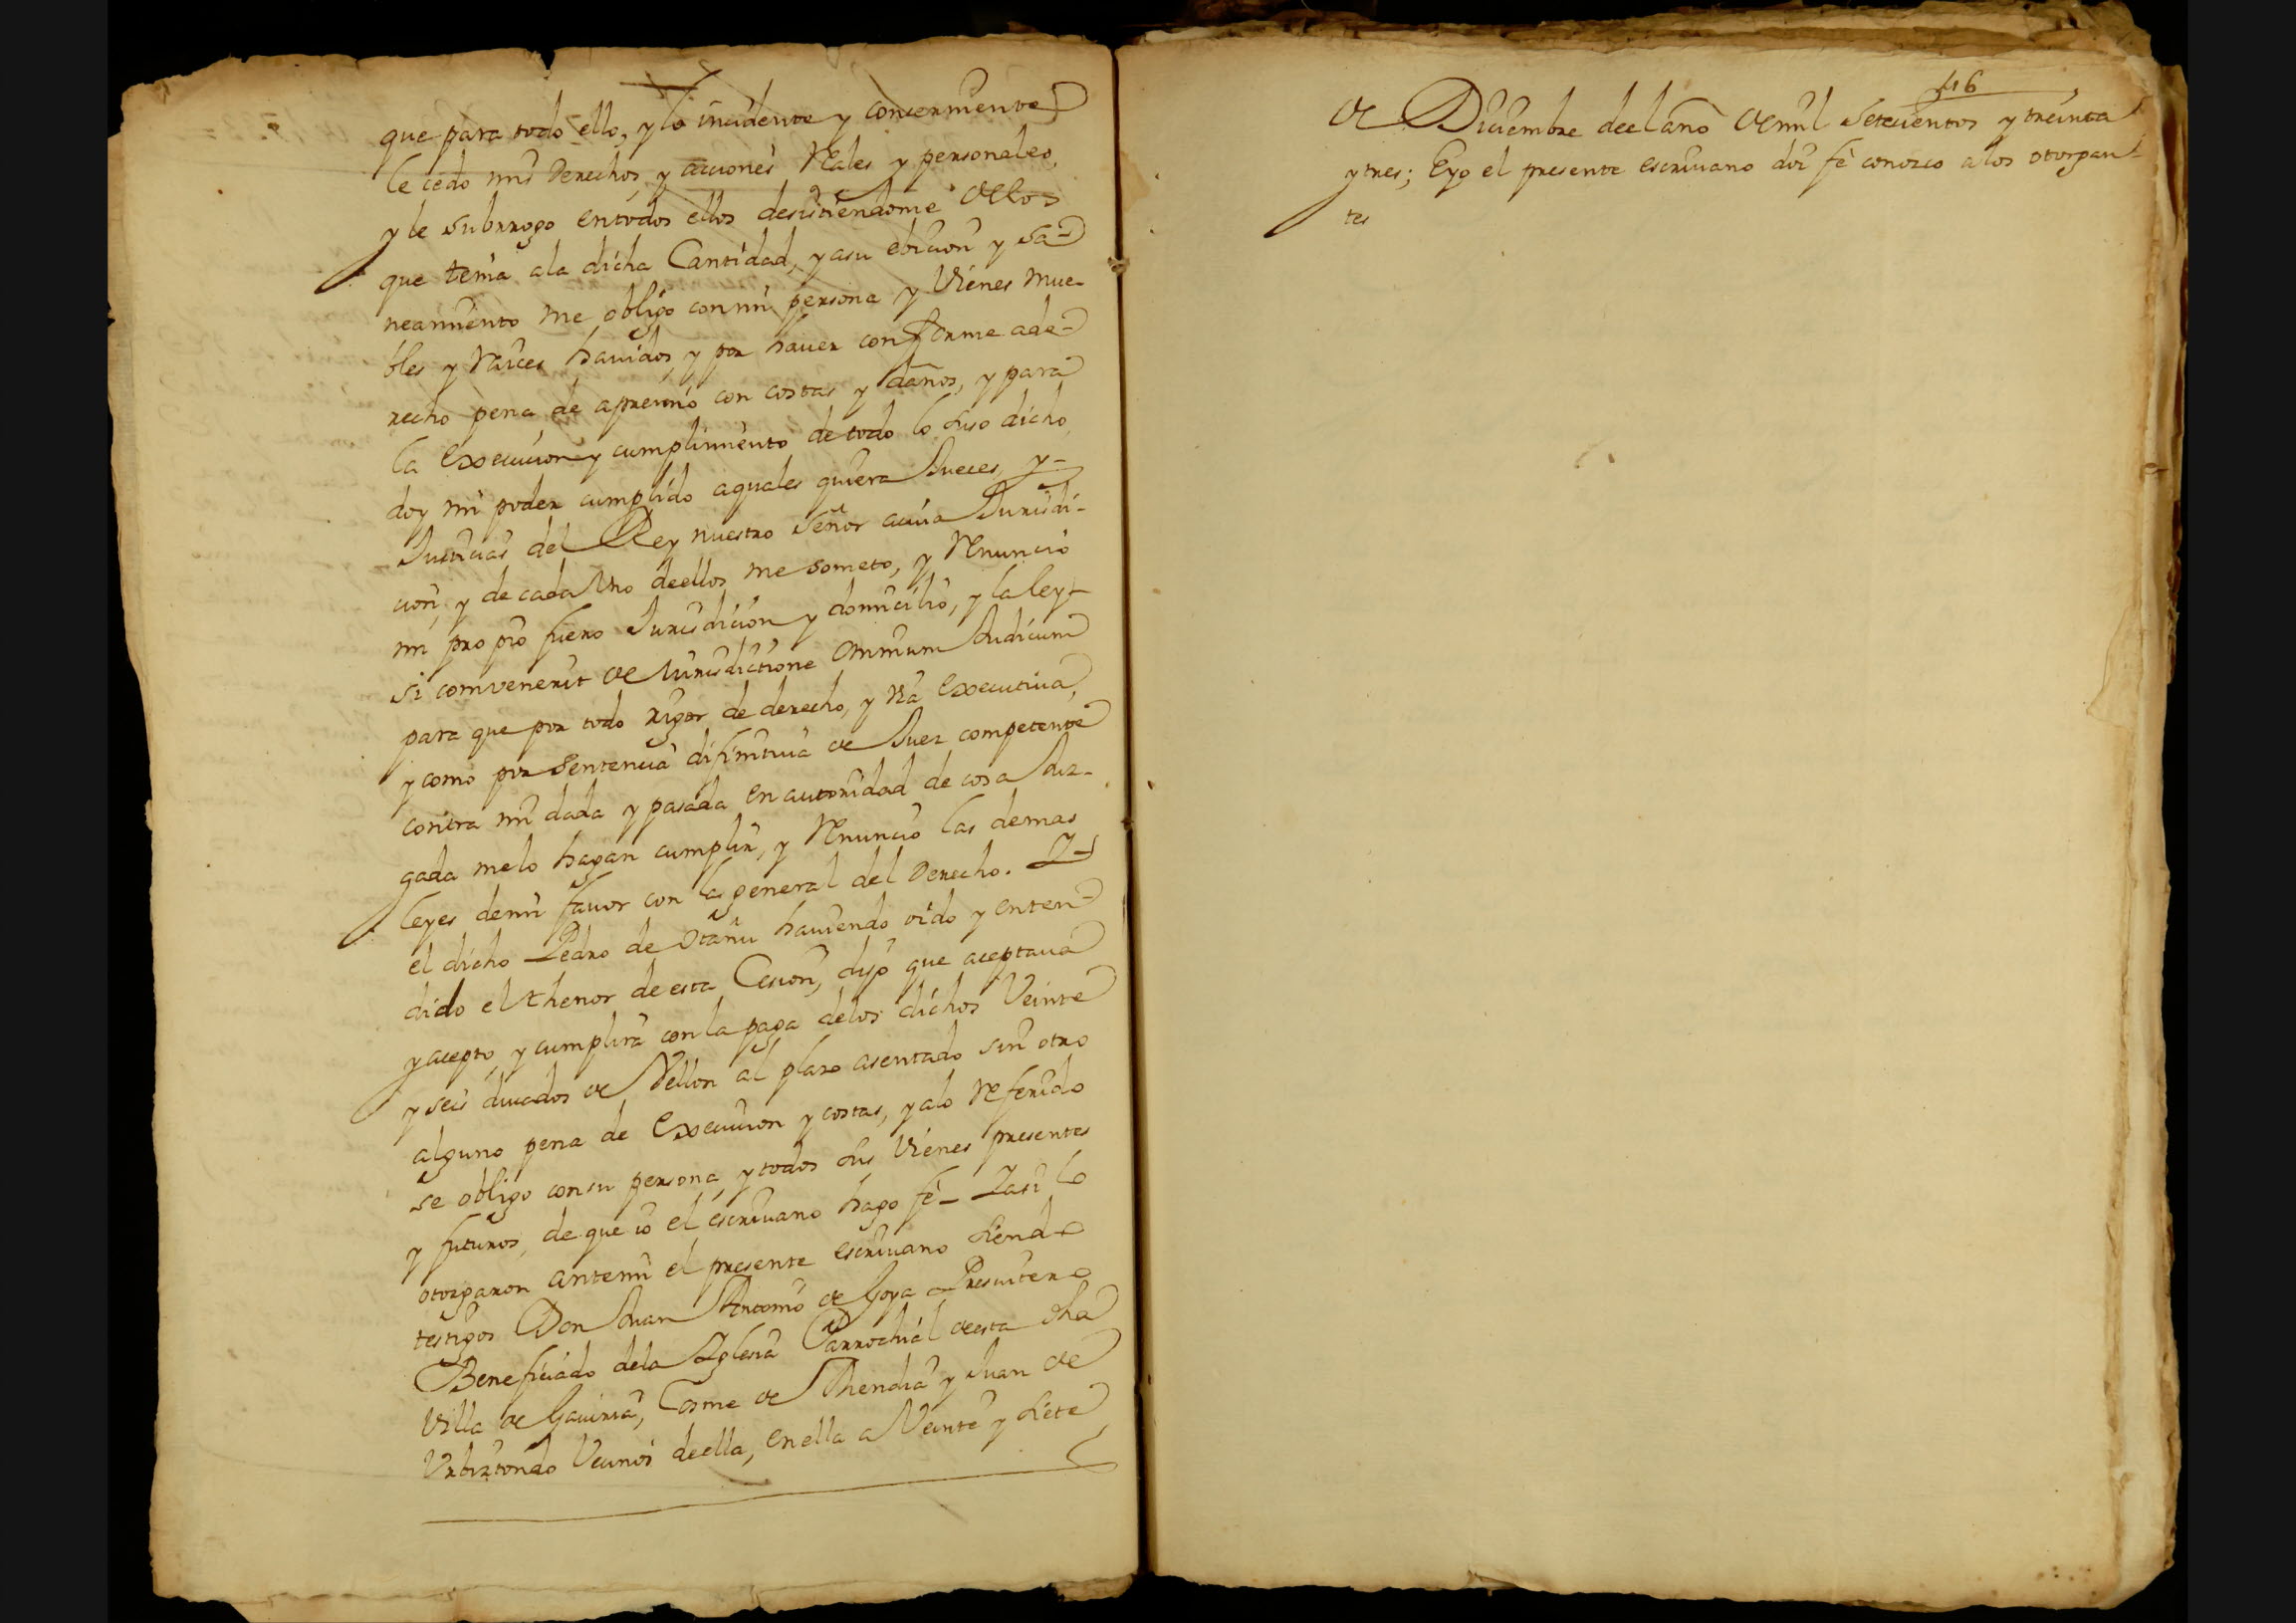 que para todo ello, y lo incidente y concerniente
le cedo mis Derechos, y acciones Reales y personales,
y le subrrogo entodos ellos desistiendome delos
que tenia ala dicha Cantidad, y asu ebicion y sa-
neamiento me obligo con mi persona y Vienes mue-
bles y Raices havidos, y por haver conforme ade-
recho pena de apremio con costas y daños, y para
la Execucion y cumplimiento de todo lo suso dicho,
doy mi poder cumplido aquales quiera Jueces, y-
Justicias del Rey nuestro Señor acuia Jurisdi-
cion, y de cada Uno deellos me someto, y Renuncio
mi propio fuero Jurisdicion y domicilio, y la ley-
si comvenerit de Jurisdictione Omnium Judicum
para que por todo rigor de derecho, y Via Executiva,
y como por Sentencia difinitiva de Juez competente
contra mi dada y pasada en autoridad de cosa Juz-
gada melo hagan cumplir, y Renuncio las demas
leyes demi favor con la general del Derecho. Y-
el dicho Pedro de Otañu haviendo oido y enten-
dido el thenor de esta Cesion, dijo que aceptava
y acepto, y cumplira con la paga delos dichos Veinte
y seis ducados de Vellon al plazo asentado sin otro
alguno pena de Execucion y costas, y alo Referido
se obligo consu persona y todos sus Vienes presentes
y futuros, de que io el escrivano hago fè- Yasi lo
otorgaron antemi el presente escrivano siendo
testigos Don Juan Antonio de Goya Presvitero
Beneficiado dela Yglesia Parrochial deesta dha
Villa de Gaviria, Cosme de Thendia y Juan de
Urbiztondo Vecinos deella, en ella a Veinte y siete
116
de Diciembre deel año de mil Setecientos y treinta
y tres; Eyo el presente escrivano doi fè conozco alos otorgan-
tes